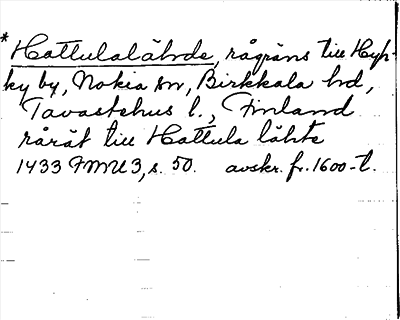 * Hattulalähde, rågräns till Hyh-
ky by, Nokia sn, Birkkala hd,
Tavastehus l., Finland
råråt till Hattula lähte
1433 FMU 3, s. 50. avskr. fr. 1600-t.